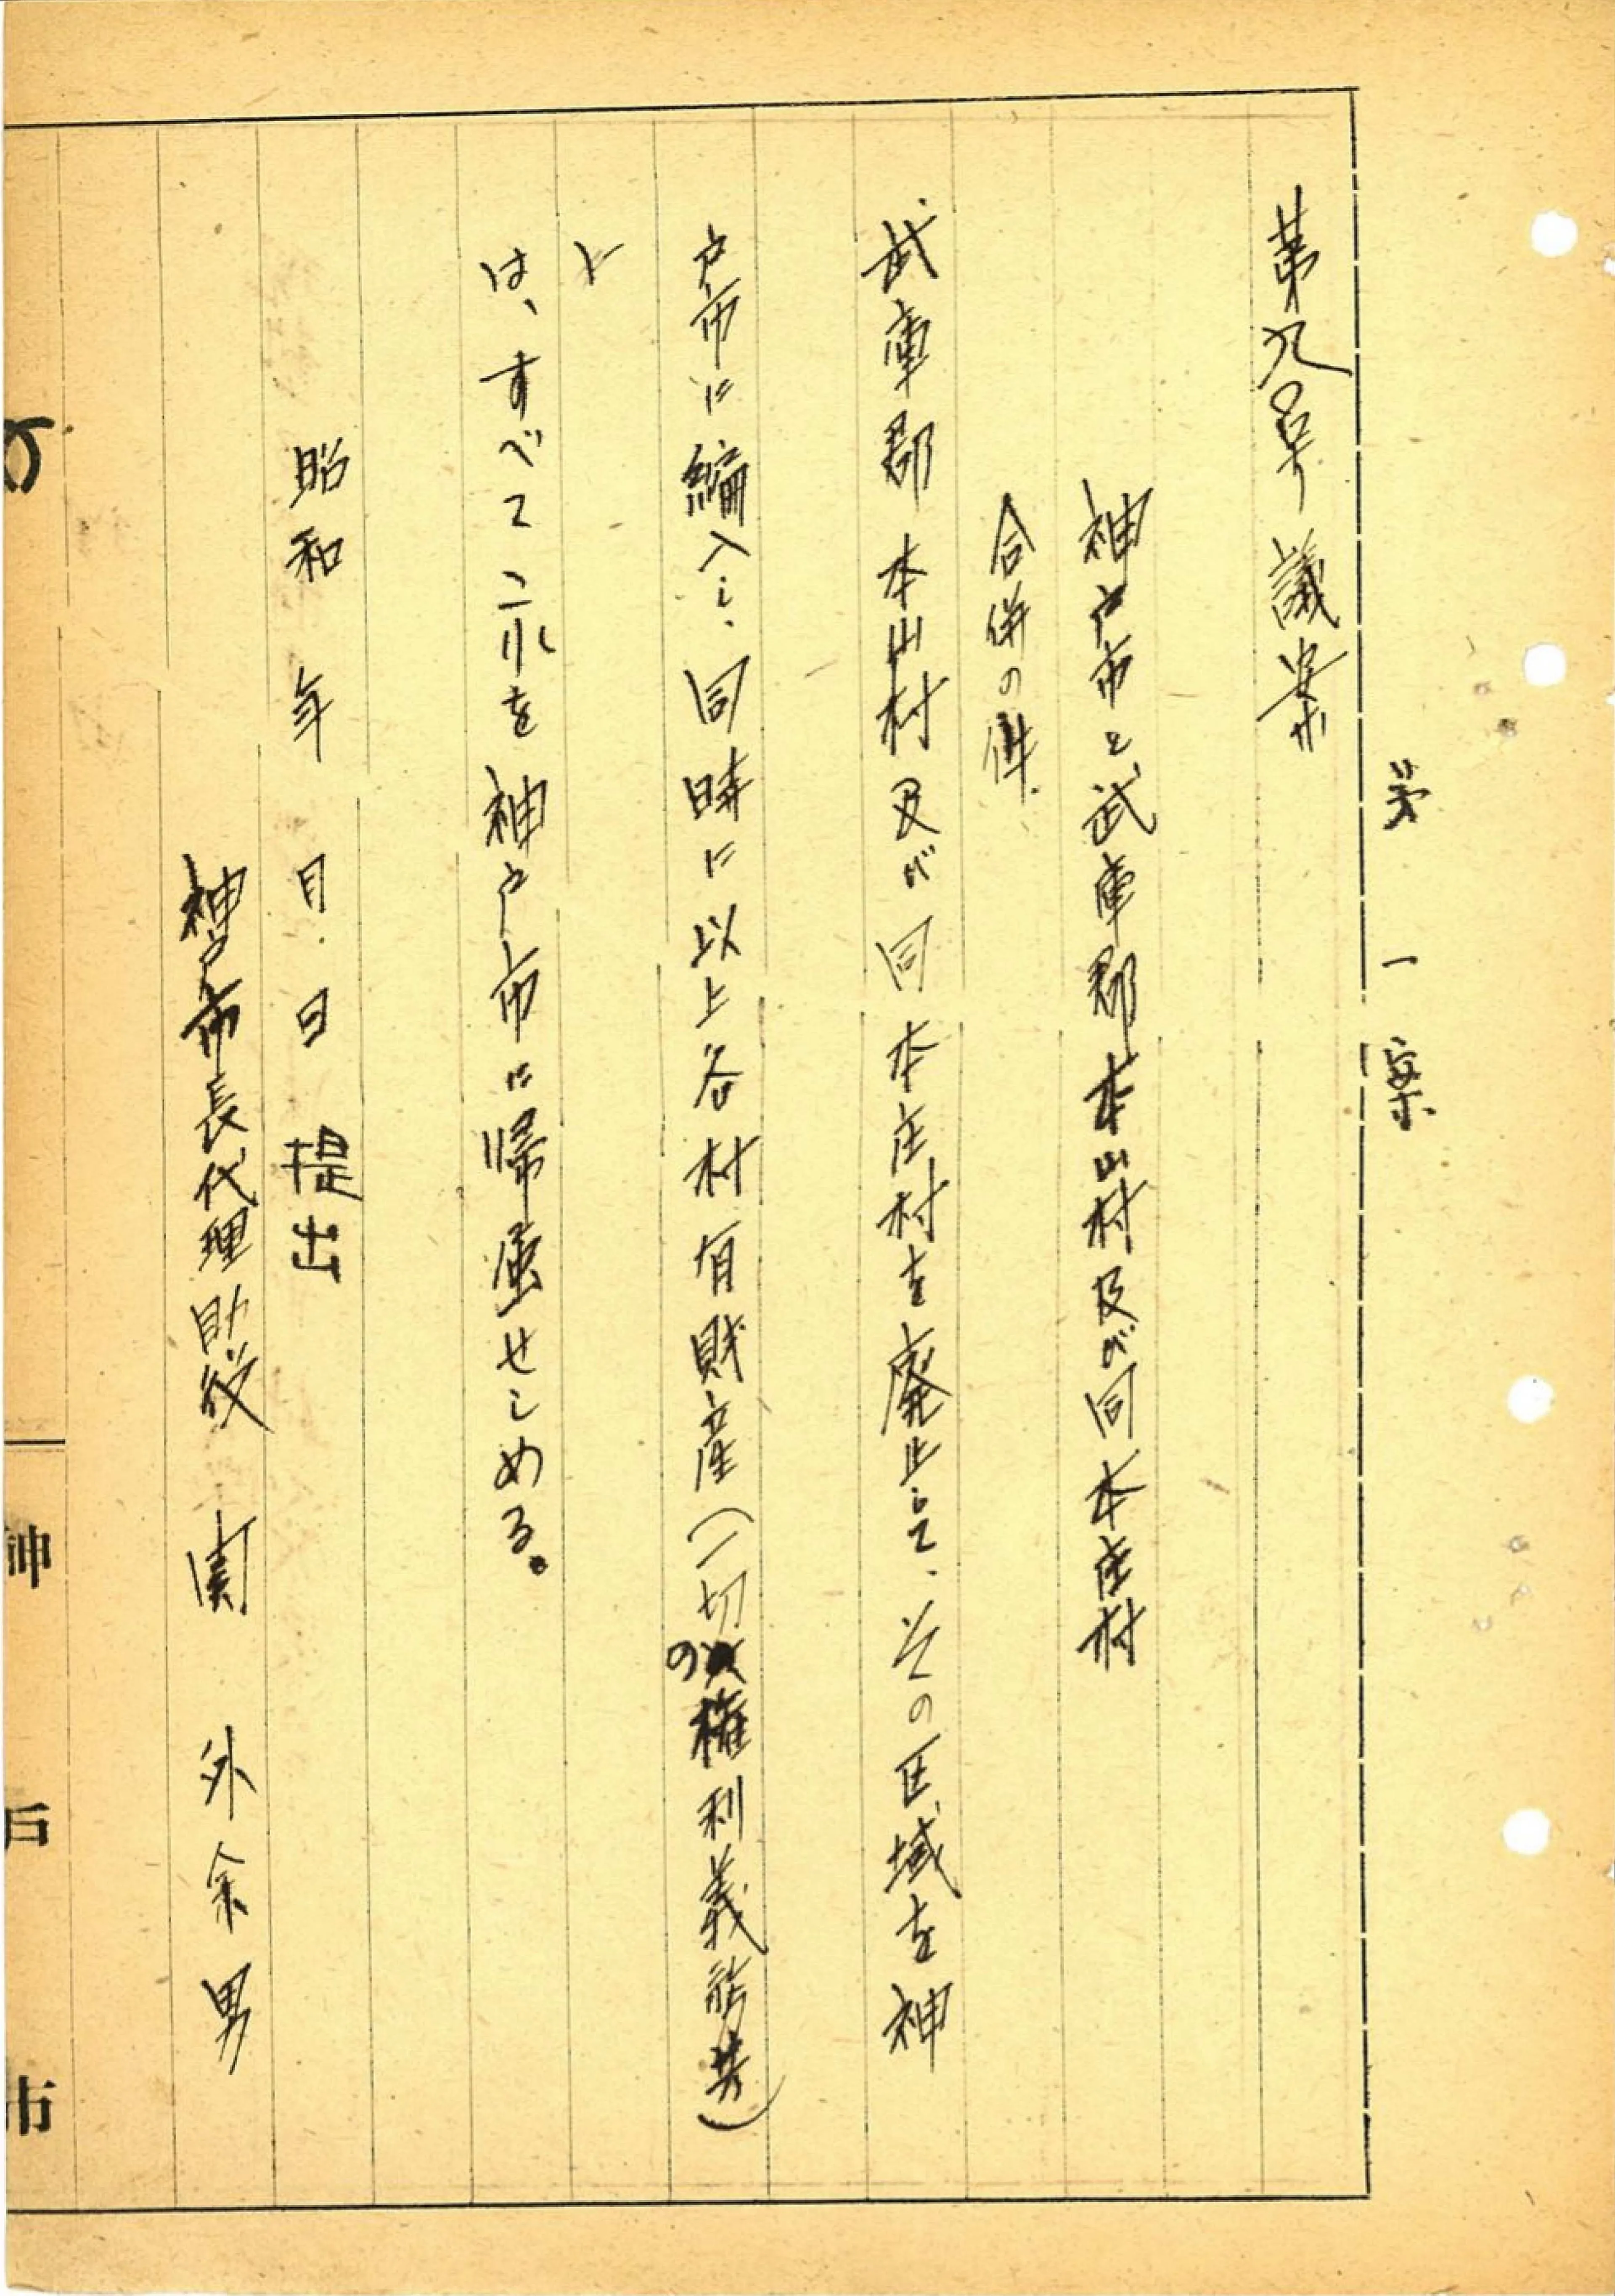 第一案
第九号議案
神戸市と武庫郡本山村及び同本庄村
合併の件
武庫郡本山村及び同本庄村を廃止して、その区域を神
戸市に編入し、同時に以上各村有財産(一切の権利義務共)
は、すべてこれを神戸市に帰属せしめる。
昭和 年 月 日 提出
神戸市長代理助役 関 外余男
の
神戸市